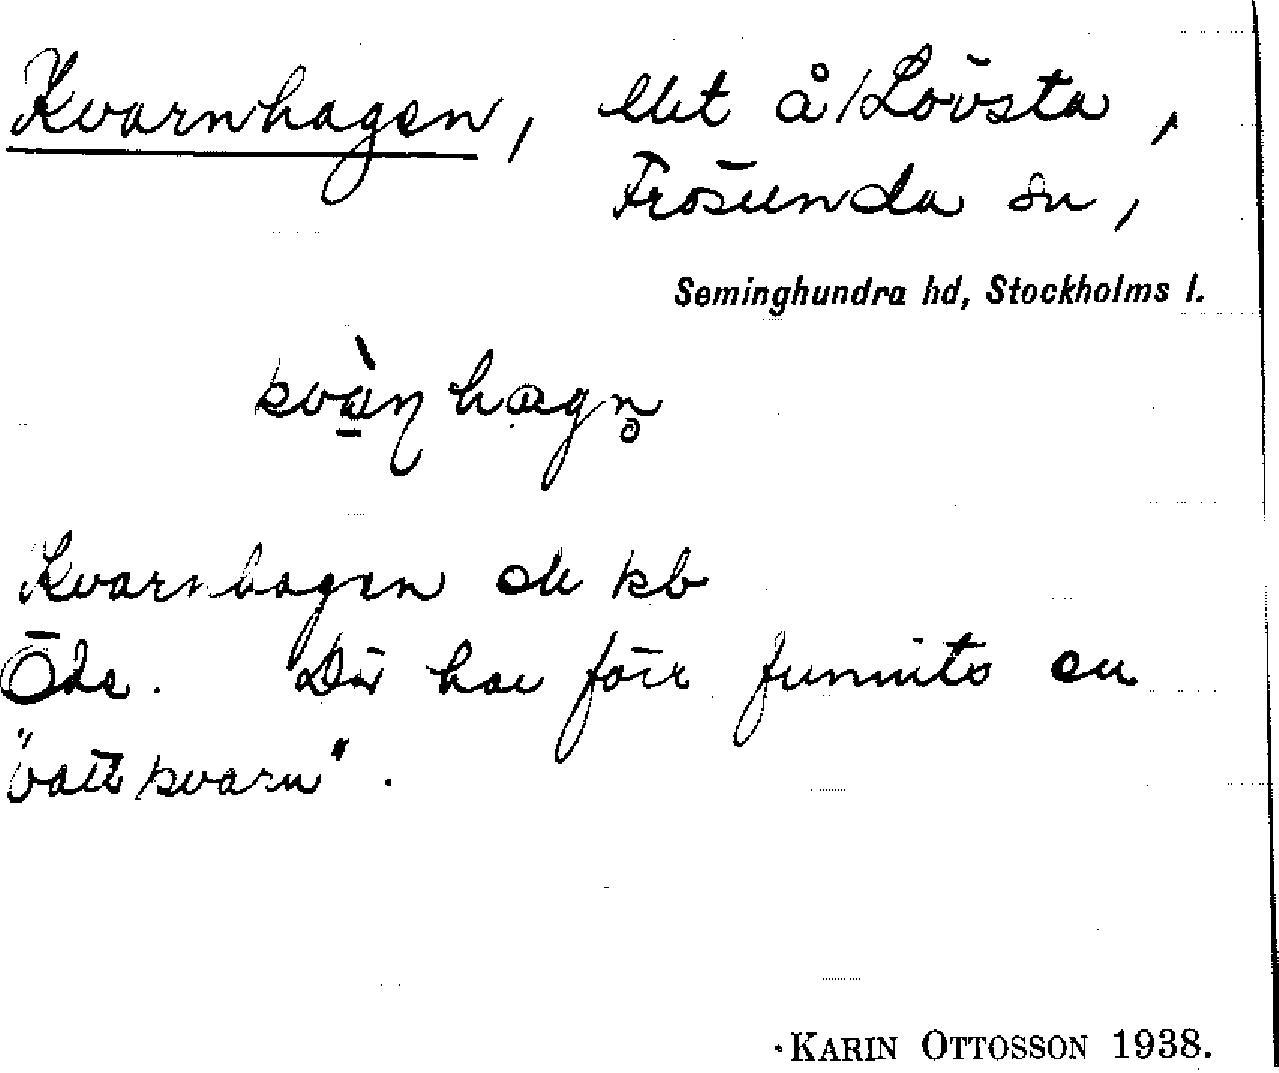 Kvarnhagen, lht å/Lövsta,
Frösunda sn,
Seminghundra hd, Stockholms l.
hagn̥
Kvarnhagen ek kb
Öde. Där har förr funnits en
"vattkvarn".
KARIN OTTOSSON 1938.